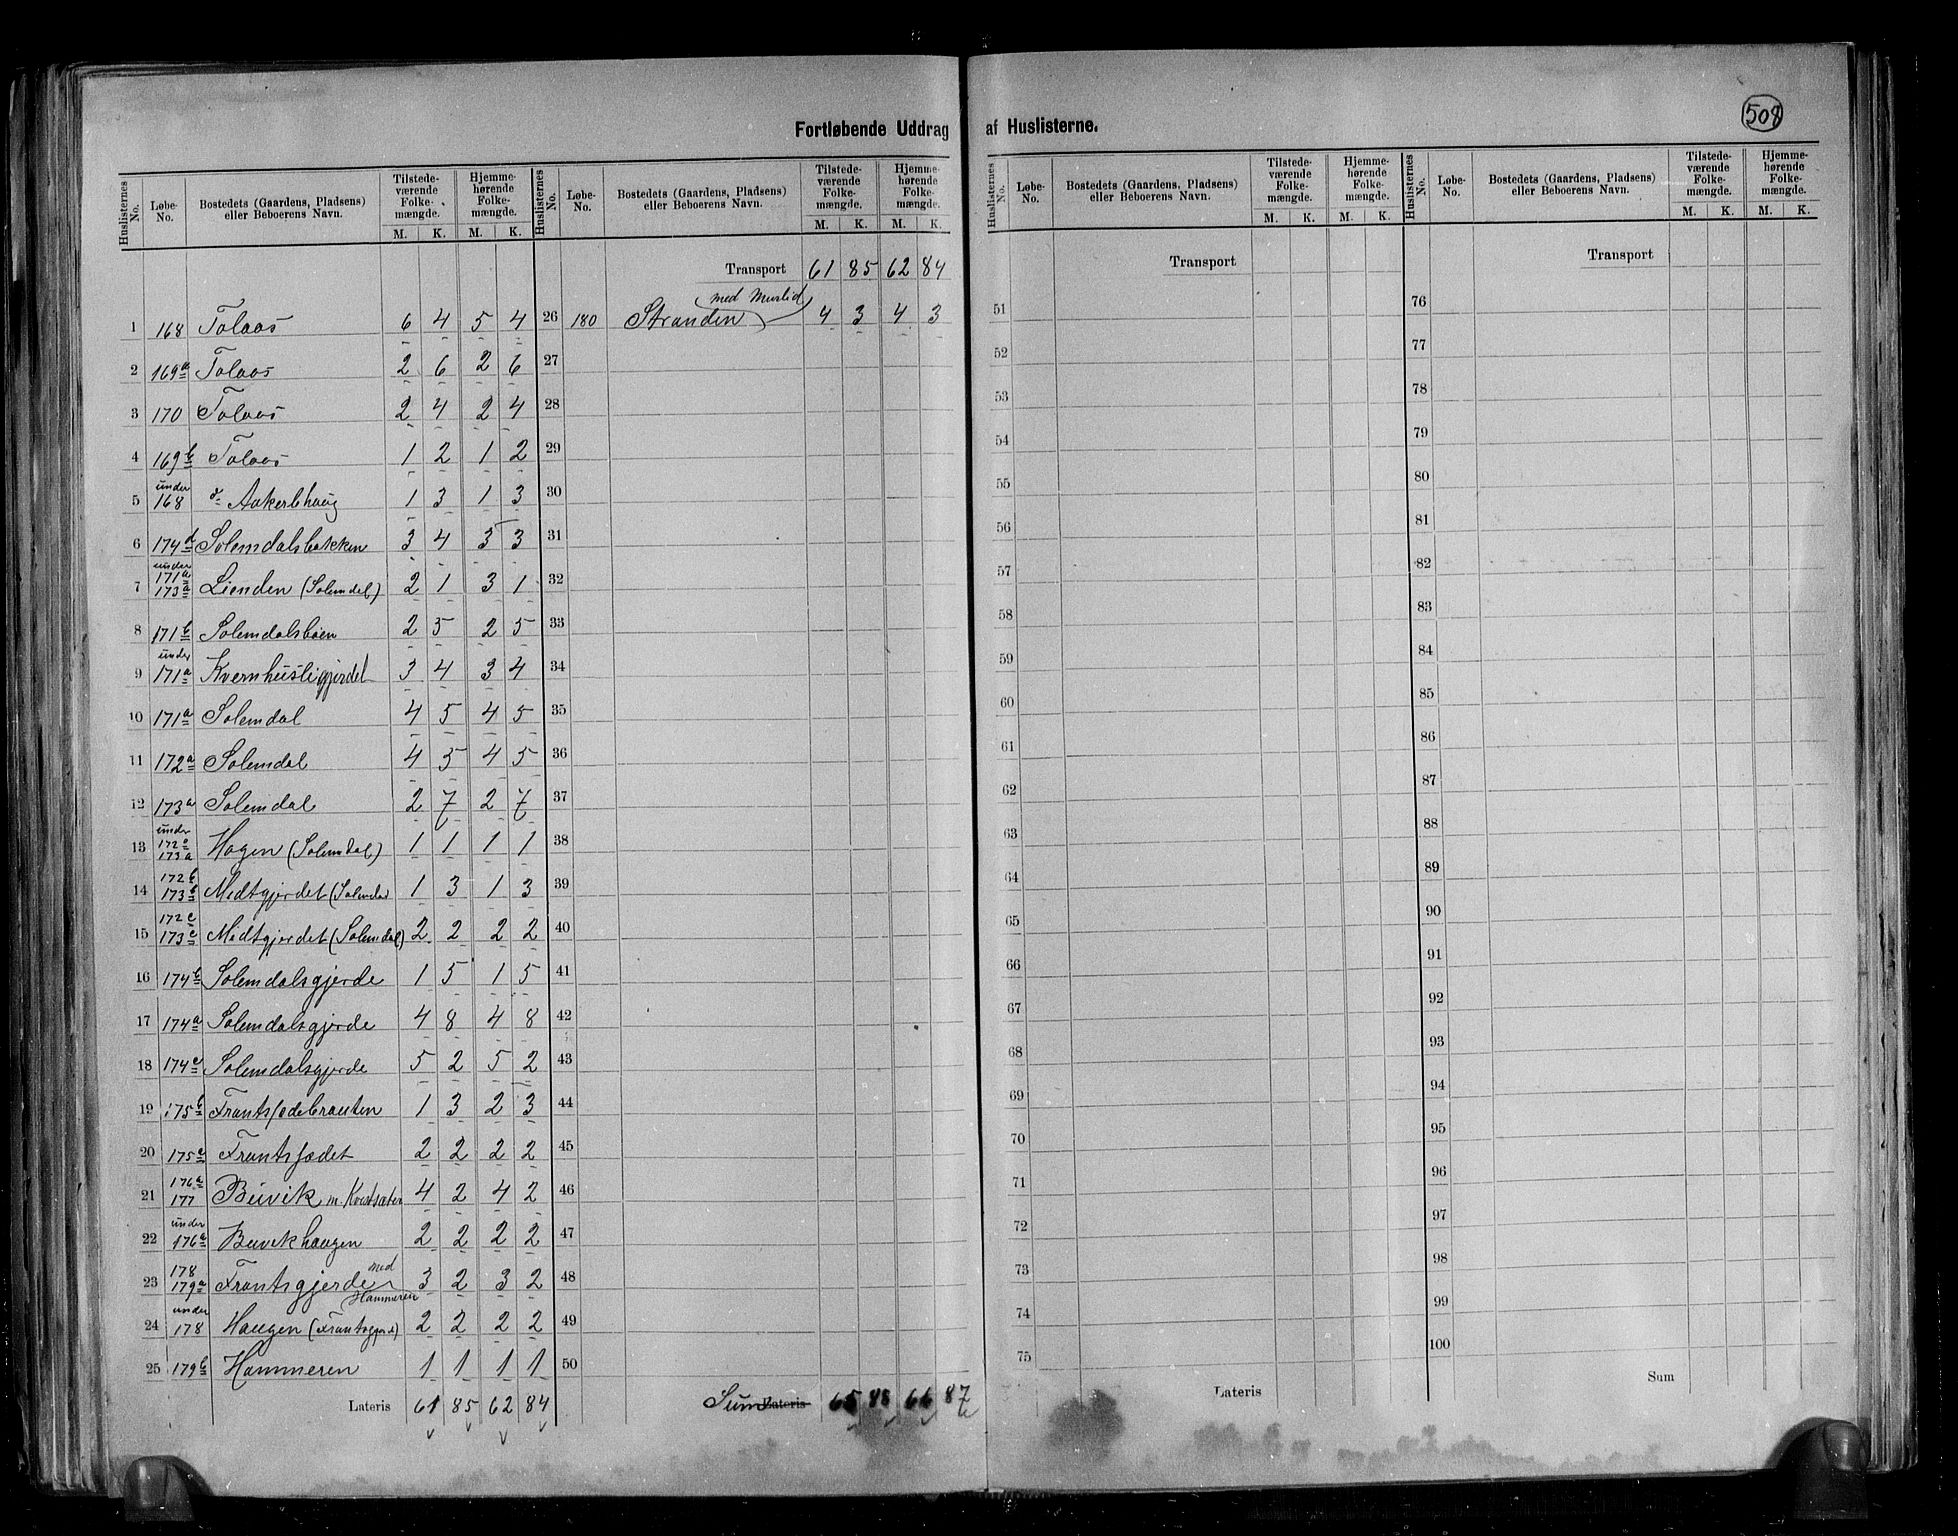 508
Fortløbende Uddrag af Huslisterne.
Huslisternes No. Løbe-No. Bostedets (Gaardens, Pladsens) eller Beboerens Navn. Tilstede-værende Folke-mængde. M. K. Hjemme-hørende Folke-mængde. M. K.
1 168 Tolaas 6 4 5 4
2 169a Tolaas 2 6 2 6
3 170 Tolaas 2 4 2 4
4 169b Tolaas 1 2 1 2
5 under 168 Aakerlhaug 1 3 1 3
6 174d Solemdalsbakken 3 4 3 3
7 under 171a 173a Lienden (Solemdal) 2 1 3 1
8 171b Solemdalsbøen 2 5 2 5
9 under 171a Kvernhusligjerdet 3 4 3 4
10 171a Solemdal 4 5 4 5
11 172a Solemdal 4 5 4 5
12 173a Solemdal 2 7 2 7
13 under 172a 173a Hagen (Solemdal) 1 1 1 1
14 172b 173b Medtgjerdet (Solemdal 1 3 1 3
15 172c 173c Medtgjerdet (Solemdal) 2 2 2 2
16 174b Solemdalsgjerde 1 5 1 5
17 174a Solemdalsgjerde 4 8 4 8
18 174c Solemdalsgjerde 5 2 5 2
19 175b Frantsfødebrauten 1 3 2 3
20 175c Frantsfødet 2 2 2 2
21 176a 177 Buvik m. Kvistsæter 4 2 4 2
22 under 176a Buvikhaugen 2 2 2 2
23 178 179a Frantsgjerde med Hammeren 3 2 3 2
24 under 178 Haugen (Frantsgjerd) 2 2 2 2
25 179b Hammeren 1 1 1 1
Lateris 61 85 62 84
Huslisternes No. Løbe-No. Bostedets (Gaardens, Pladsens) eller Beboerens Navn. Tilstede-værende Folke-mængde. M. K. Hjemme-hørende Folke-mængde. M. K.
Transport 61 85 62 84
26 180 Stranden med Murlid 4 3 4 3
27
28
29
30
31
32
33
34
35
36
37
38
39
40
41
42
43
44
45
46
47
48
49
50
Sum Lateris 65 88 66 87
Huslisternes No. Løbe-No. Bostedets (Gaardens, Pladsens) eller Beboerens Navn. Tilstede-værende Folke-mængde. M. K. Hjemme-hørende Folke-mængde. M. K.
Transport
51
52
53
54
55
56
57
58
59
60
61
62
63
64
65
66
67
68
69
70
71
72
73
74
75
Lateris
Huslisternes No. Løbe-No. Bostedets (Gaardens, Pladsens) eller Beboerens Navn. Tilstede-værende Folke-mængde. M. K. Hjemme-hørende Folke-mængde. M. K.
Transport
76
77
78
79
80
81
82
83
84
85
86
87
88
89
90
91
92
93
94
95
96
97
98
99
100
Sum